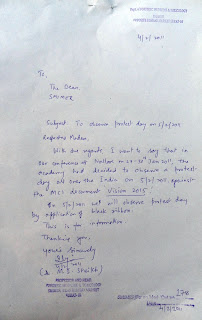 4/2/2011
To,
The Dean,
SMIMER
Subject: To observe protest day on 5/2/2011
Respected Madam,
With due regards I want to say that in
our conference at Nellore in 28-30th Jan 2011, the
academy had decided to observe a protest
day all over the India on 5/2/2011 against
the MCI document Vision 2015.
On 5/2/2011 we will observe protest day
by application of black ribbon.
This is for information.
Thanking you,
yours sincerely
4/2/2011
M.I. Sheikh)
PROFESSOR AND HEAD
378
4/2/2011